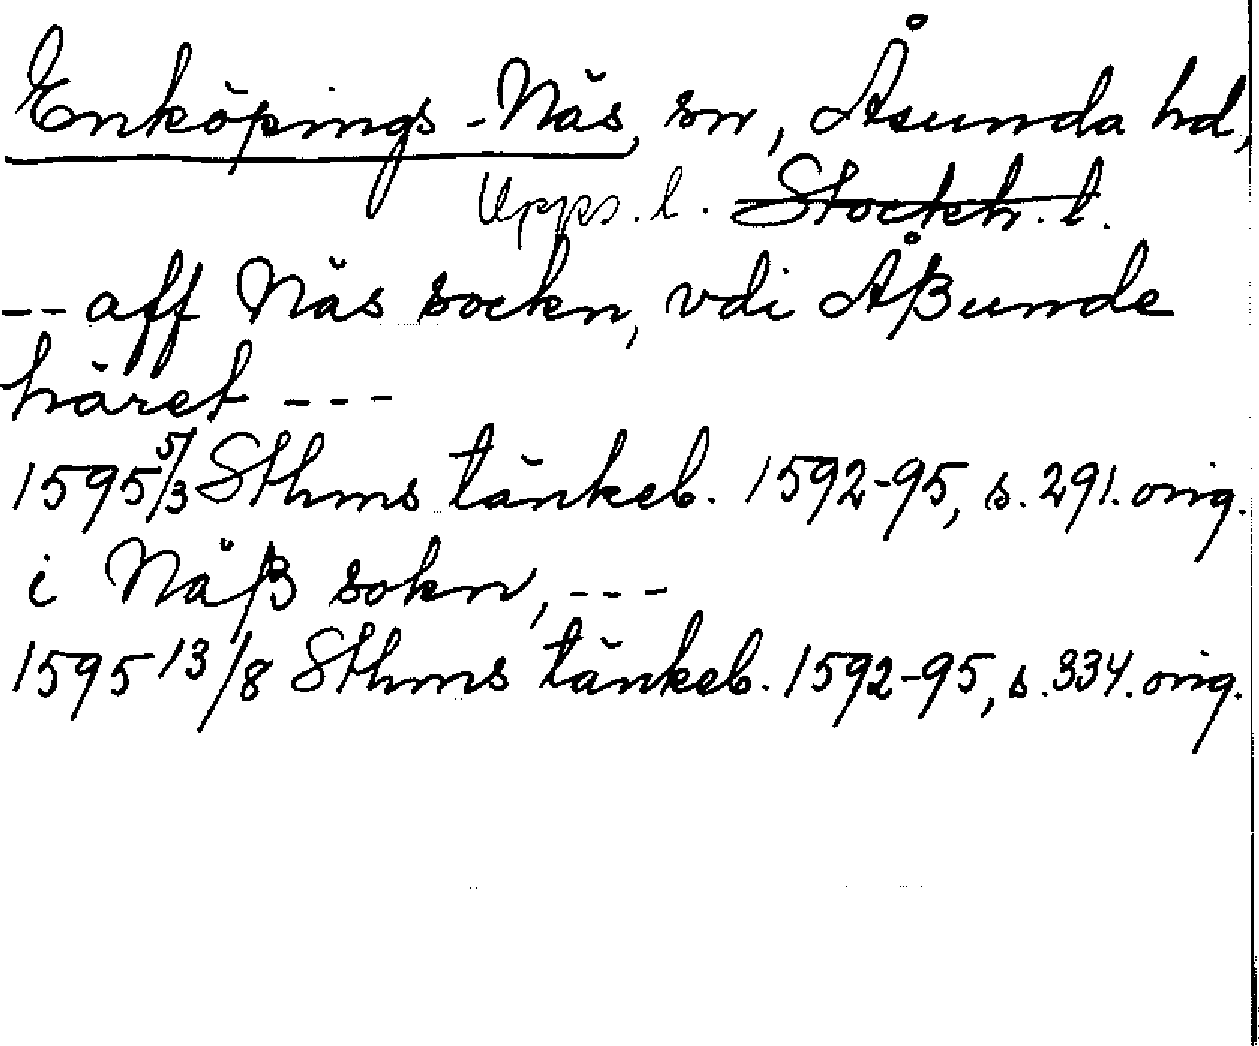 Enköpings-Näs, sn, Åsunda hd,
Upps. l. Stockh. l.
-- aff Näs sockn, vdi Åßunde
häret ---
1595 5/3 Sthms tänkeb. 1592-95, s. 291. orig.
i Näß sokn, ---
1595 13/8 Sthms tänkeb. 1592-95, s. 334. orig.